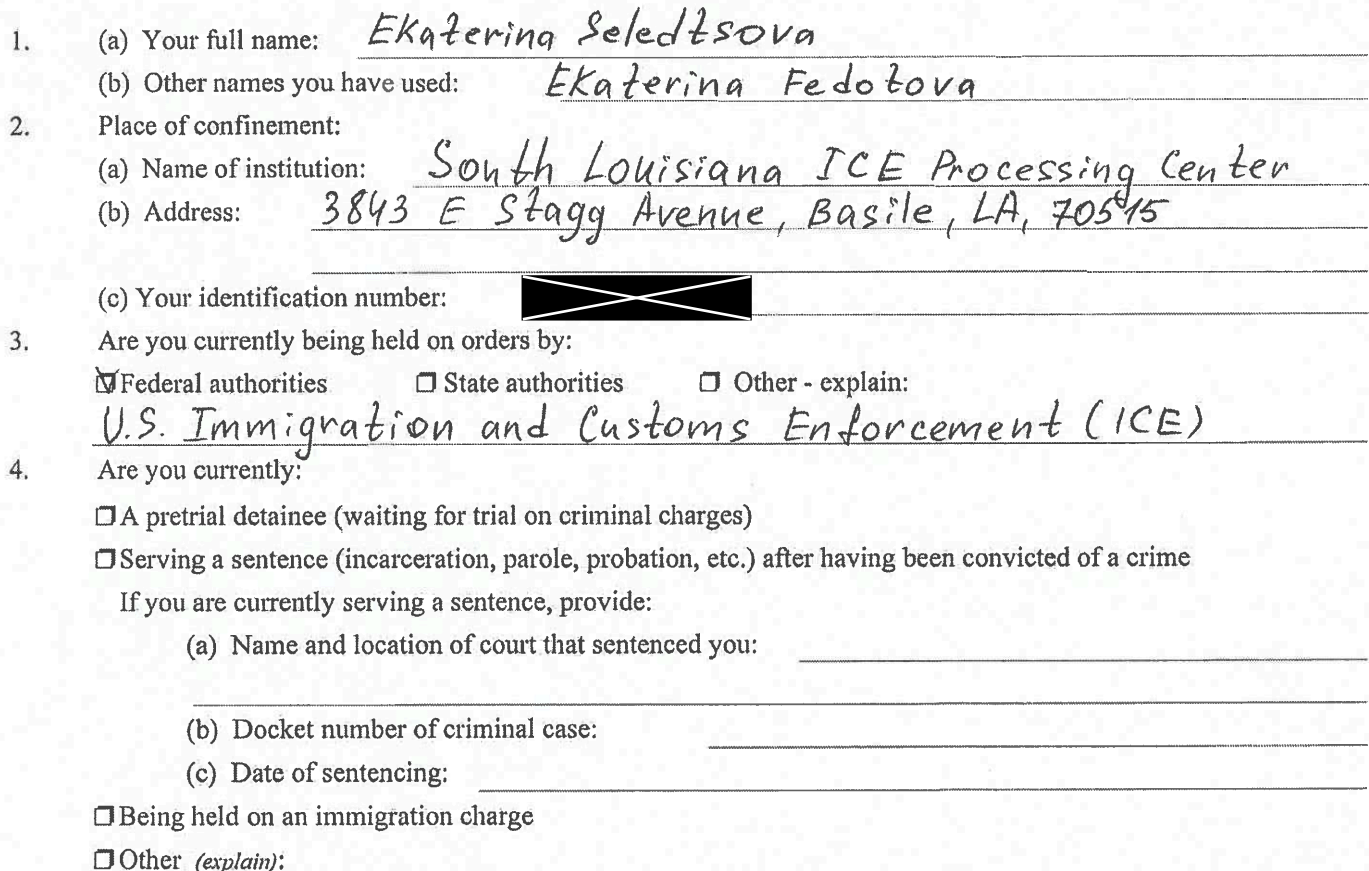 1. (a) Your full name: Ekaterina Seledtsova
(b) Other names you have used: Ekaterina Fedotova
2. Place of confinement:
(a) Name of institution: South Louisiana ICE Processing Center
(b) Address: 3843 E Stagg Avenue, Basile, LA, 70515
(c) Your identification number:
3. Are you currently being held on orders by:
☑Federal authorities ☐ State authorities ☐ Other - explain:
U.S. Immigration and Customs Enforcement (ICE)
4. Are you currently:
☐A pretrial detainee (waiting for trial on criminal charges)
☐Serving a sentence (incarceration, parole, probation, etc.) after having been convicted of a crime
If you are currently serving a sentence, provide:
(a) Name and location of court that sentenced you:
(b) Docket number of criminal case:
(c) Date of sentencing:
☐Being held on an immigration charge
☐Other (explain):